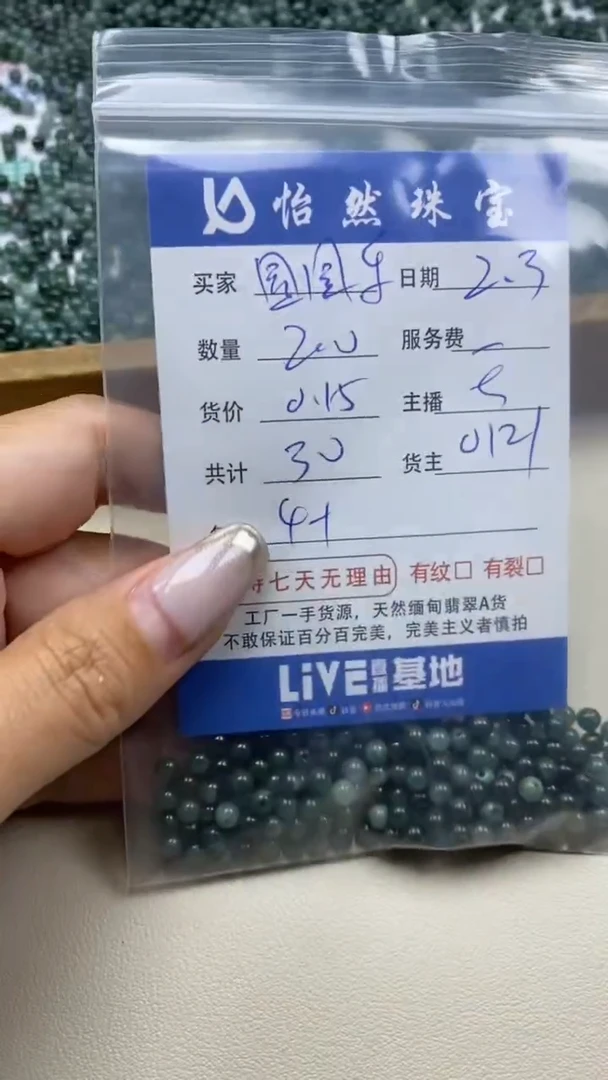 怡然珠宝
买家 圆圆年 日期 2.3
数量 200 服务费
货价 0.15 主播
共计 30 货主 0121
4+
七天无理由 有纹□ 有裂□
工厂一手货源,天然缅甸翡翠A货
不敢保证百分百完美,完美主义者慎拍
LiVE直播基地